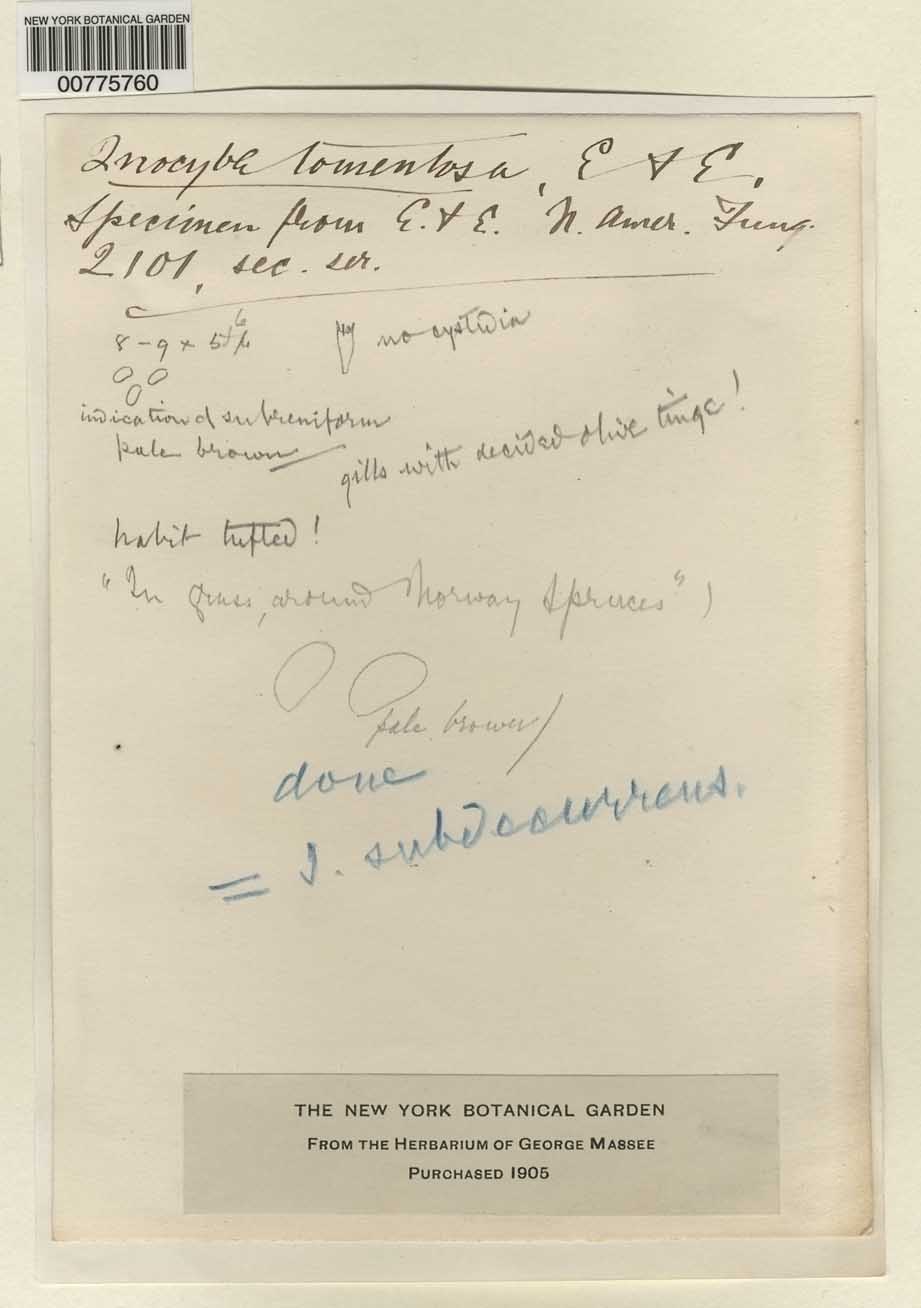 NEW YORK BOTANICAL GARDEN
00775760
Inocybe tomentosa, E & E,
Specimen from E. & E. N. Amer. Fung.
2101, sec. ser.
8-9 × 5-6 µ
no cystidia
indication of subreniform
pale brown
gills with decided olive tinge!
habit tufted!
"In grass, around Norway Spruces" )
pale brown
done
= I. subdecurrens.
THE NEW YORK BOTANICAL GARDEN
FROM THE HERBARIUM OF GEORGE MASSEE
PURCHASED 1905